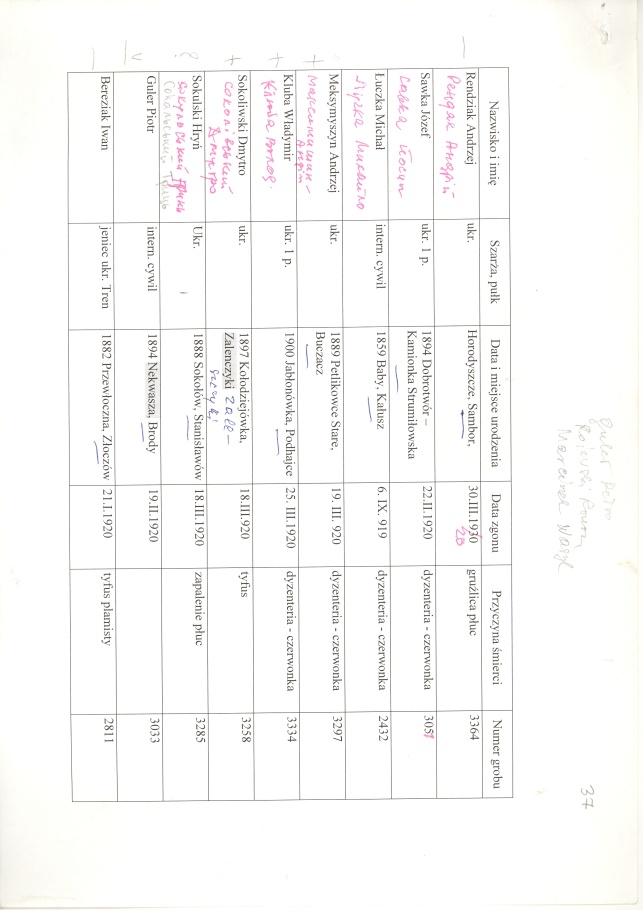 37
Guler Petro
Nazwisko i imię Szarża, pułk Data i miejsce urodzenia Data zgonu Przyczyna śmierci Numer grobu
Rendziak Andrzej ukr. Horodyszcze, Sambor, 30.III.1930 gruźlica płuc 3364
Рендяк Андрій 20
Sawka Józef ukr. 1 p. 1894 Dobrotwór – 22.II.1920 dyzenteria - czerwonka 3051
Савка Йосип Kamionka Strumiłowska
Łuczka Michał intern. cywil 1859 Baby, Kałusz 6. IX. 919 dyzenteria - czerwonka 2432
Лучка Михайло
Meksymyszyn Andrzej ukr. 1889 Petlikowce Stare, 19. III. 920 dyzenteria - czerwonka 3297
Максимишин Buczacz
Андрій
+
Kluba Władymir ukr. 1 p. 1900 Jabłonówka, Podhajce 25. III.1920 dyzenteria - czerwonka 3334
Клюба Волод.
+
Sokoliwski Dmytro ukr. 1897 Kołodziejówka, 18.III.920 tyfus 3258
Соколівський Zalenczyki Zale-
Дмитро szczyki
+
Sokulski Hryń Ukr. 1888 Sokołów, Stanisławów 18.III.1920 zapalenie płuc 3285
Сокульський Гринь
Сокальський Гриць
?
Guler Piotr intern. cywil 1894 Nekwasza, Brody 19.II.1920 3033
V
Bereziak Iwan jeniec ukr. Tren 1882 Przewłoczna, Złoczów 21.I.1920 tyfus plamisty 2811